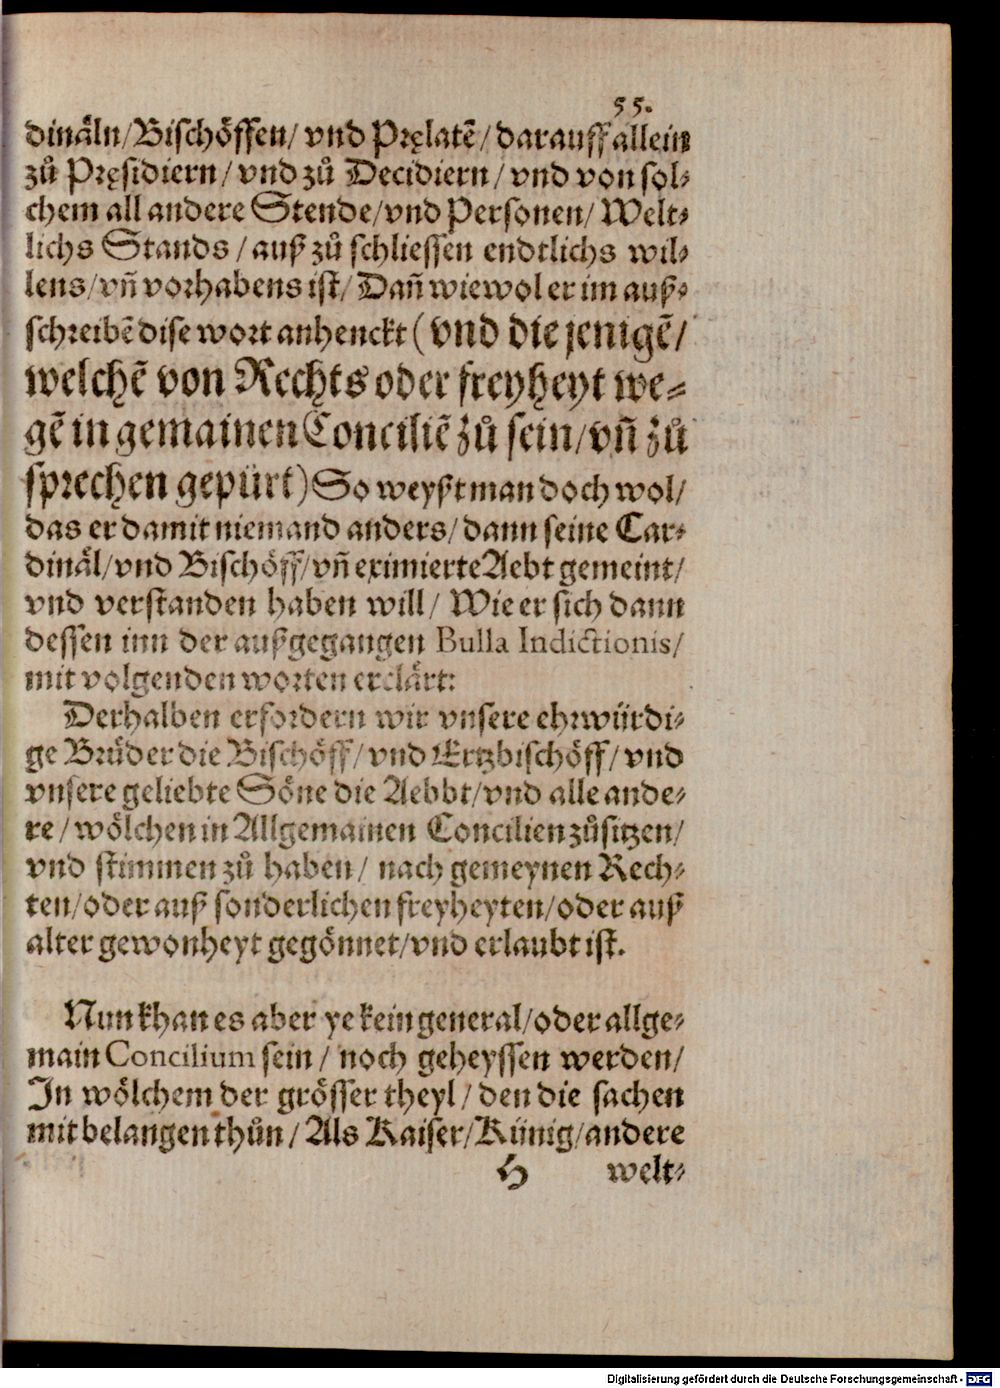 55.
dinäln/Bischöffen/ vnd Pręlatẽ/darauff allein
zů Pręsidiern/vnd zů Decidiern/vnd von sol⸗
chem all andere Stende/vnd Personen/ Welt⸗
lichs Stands/auß zů schliessen endtlichs wil⸗
lens/vñ vorhabens ist/Dañ wiewol er im auß⸗
schreibẽ dise wort anhenckt (vnd die jenigẽ/
welchẽ von Rechts oder freyheyt we⸗
gẽ in gemainen Conciliẽ zů sein/vñ zů
sprechen gepürt) So weyßt man doch wol/
das er damit niemand anders/dann seine Car⸗
dinäl/vnd Bischöff/vñ eximierte Aebt gemeint/
vnd verstanden haben will/ Wie er sich dann
dessen inn der außgegangen Bulla Indictionis/
mit volgenden worten erclärt:
Derhalben erfordern wir vnsere ehrwürdi⸗
ge Brüder die Bischöff/vnd Ertzbischöff/vnd
vnsere geliebte Söne die Aebbt/vnd alle ande⸗
re/wölchen in Allgemainen Concilien zůsitzen/
vnd stimmen zů haben/ nach gemeynen Rech⸗
ten/oder auß sonderlichen freyheyten/oder auß
alter gewonheyt gegönnet/vnd erlaubt ist.
Nun khan es aber ye kein general/oder allge⸗
main Concilium sein/ noch geheyssen werden/
In wölchem der grösser theyl/den die sachen
mit belangen thůn/Als Kaiser/Künig/andere
H welt⸗
Digitalisierung gefördert durch die Deutsche Forschungsgemeinschaft - DFG